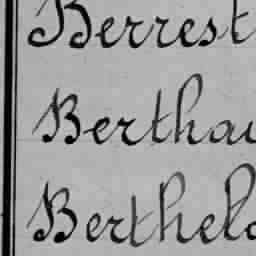 Berrest
Berthau
Berthelo